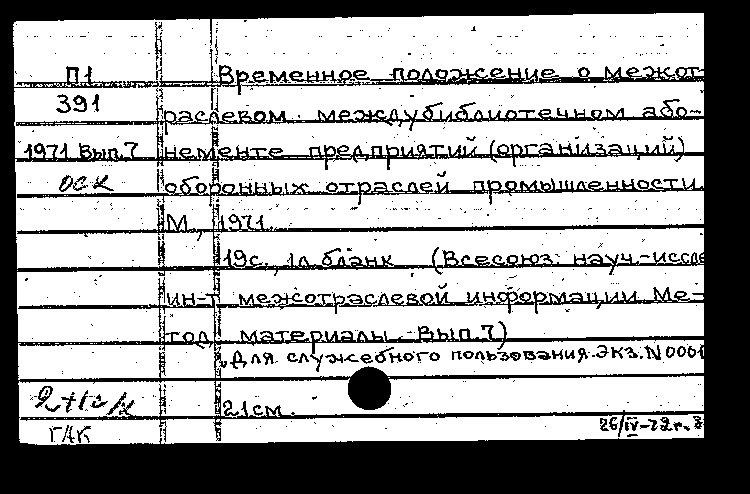 П1 Временное положение о межот-
391 раслевом междубиблиотечном або-
1971 Вып.7 нементе предприятий (организаций)
ОСК оборонных отраслей промышленности.
М., 1971.
19с., 1л. бланк (Всесоюз. науч.-иссле
ин-т межотраслевой информации. Ме-
тод. материалы. Вып.7)
Для служебного пользования. Экз. N 0001
21см.
ГАК 26/IV-72г.